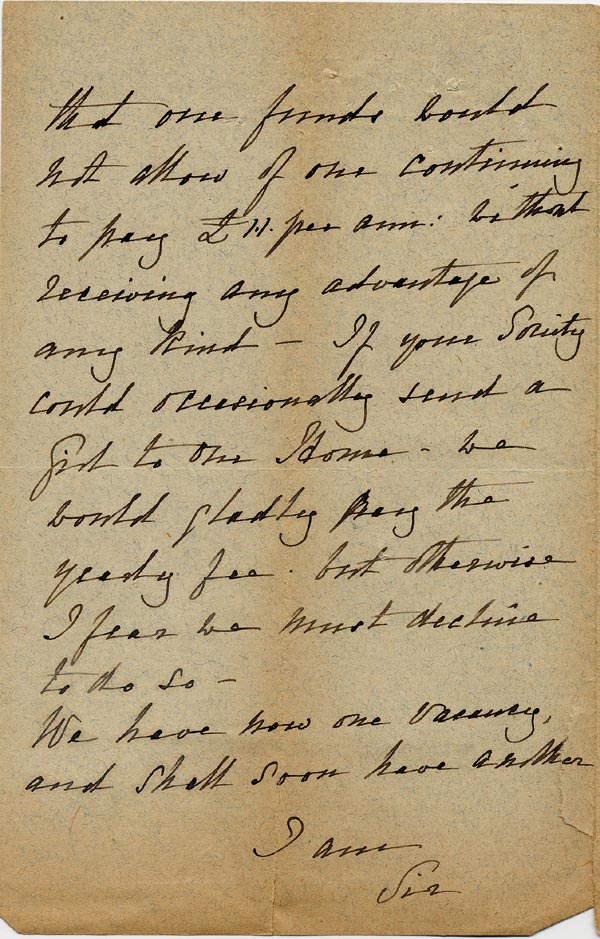 that our funds would
not allow of our continuing
to pay £1.1. per ann: without
receiving any advantage of
any kind — If your Society
could occasionally send a
Girl to our Home - we
would gladly pay the
yearly fee. but otherwise
I fear we must decline
to do so —
We have now one vacancy,
and shall soon have another
I am
Sir